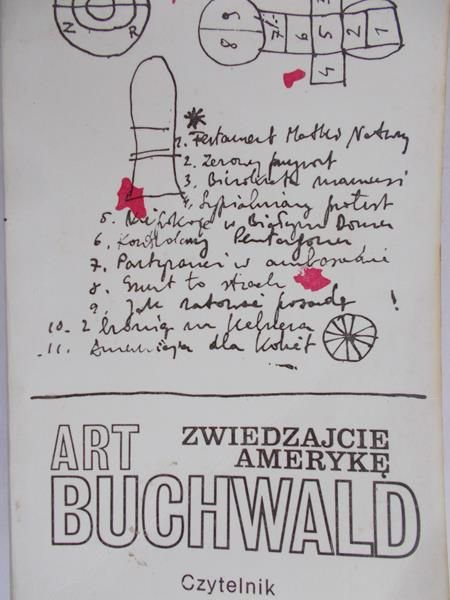 6 7 6 5 2 1
8 3
Z R 4
1. Testament Matki Natury
2. Zerowy przyrost
3. Biurokrata
4. Sypialniany protest
5. w Białym Domu
6. Pentagonu
7. Partyzanci w ambasadzie
8. Grunt to strach
9. Jak ratować posadę !
10. Z bronią na kelnera
11. dla kobiet
ART ZWIEDZAJCIE
AMERYKĘ
BUCHWALD
Czytelnik